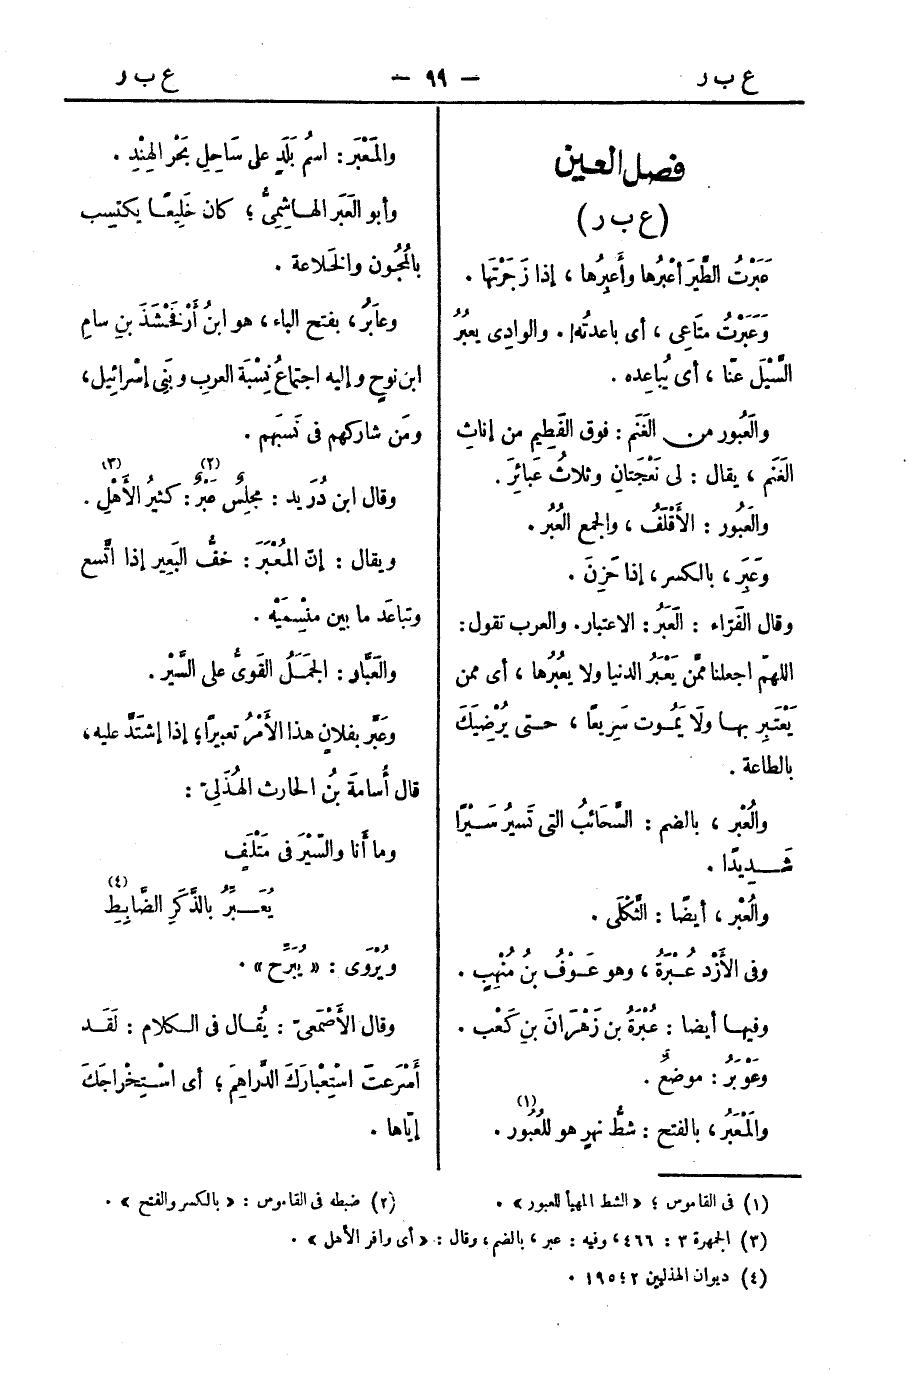 ع ب ر — ٩٩ — ع ب ر
فصل العين
(ع ب ر)
عَبَرْتُ الطَّيرَ أعْبُرها وأَعبِرُها ، إذا زَجَرْتَها .
وَعَبَرْتُ متَاعِى ، أى باعدتُه . والوادِى يعبُرُ
السَّيْلَ عنّا ، أى يُباعِده .
والعَبُور من الغَنَم : فوق الفَطِيم من إناثِ
الغَنَم ، يقال : لى نَعْجَتانِ وثلاثُ عَبائِرَ .
والعَبُور : الأَقْلَفُ ، والجمع العُبُر .
وعَبِرَ ، بالكسر ، إذا حَزِنَ .
وقال الفَرّاء : العَبَرُ : الاعتبار . والعرب تقول :
اللهمّ اجعلنا ممَّن يَعْبَرُ الدنيا ولا يعبُرُها ، أى ممن
يَعْتَبِر بهــا ولَا يَمُوت سَرِيعًا ، حتــى يُرْضِيَكَ
بالطاعة .
والعُبْر ، بالضم : السَّحَائبُ التى تَسيرُ سَيْرًا
شَــدِيدًا .
والعُبْر ، أيضًا : الثَّكْلَى .
وفى الأَزْد عُبْرَةُ ، وهو عَوْفُ بنُ مُنْهِبٍ .
وفيهـا أيضا : عُبْرَةُ بن زَهْرَانَ بنِ كَعْب .
وعَوْبَرُ : موضعٌ .
والمَعْبَرُ ، بالفتح : شطُّ نهرٍ هو للعُبُور (١) .
والمَعْبَر : اسمُ بَلَدٍ على سَاحِلِ بَحْرِ الهِنْدِ .
وأبو العَبَر الهـاشِمِىُّ ؛ كان خَلِيعًـا يكتسِب
بالمُجُون والخَلاعة .
وعابَرُ ، بفتح الباء ، هو ابنُ أَرْفَخْشَذَ بنِ سامِ
ابن نوح وإليه اجتماعُ نِسْبَة العربِ وبَنِى إسْرائيل ،
ومَن شاركهم فى نَسبَهِم .
وقال ابن دُرَيد : مجلِسٌ عَبْرٌ (٢) : كثيرُ الأَهْلِ (٣) .
ويقال : إنّ المُعْبَرَ : خفُّ البَعِير إذا اتَّسع
وتباعَد ما بين منْسِمَيْهِ .
والعَبَّار : الجَمَــلُ القَوِىُّ على السَّيْر .
وعَبَّر بفلانٍ هذا الأَمْرُ تعبيرًا ؛ إذا إشتَدَّ عليه ،
قال أُسامةَ بنُ الحارث الهُذَلِىّ :
وما أَنا والسَّيْرَ فى مَتْلَفٍ
يُعَــبِّرُ بالذَّكَرِ الضَّابِطِ (٤)
ويُرْوَى : « يُبَرِّح » .
وقال الأَصْمَعىّ : يُقال فى الكلام : لَقَد
أَسْرَعتَ اسْتِعْبارَكَ الدَّراهِمَ ؛ أى اسْتِخْراجَكَ
إيّاها .
(١) فى القاموس ؛ « الشط المهيأ للعبور » .
(٢) ضبطه فى القاموس : « بالكسر والفتح » .
(٣) الجمهرة ٣ : ٤٦٦ ، وفيه : عبر ، بالضم ، وقال : « أى وافر الأهل » .
(٤) ديوان الهذليين ٢ : ١٩٥ .